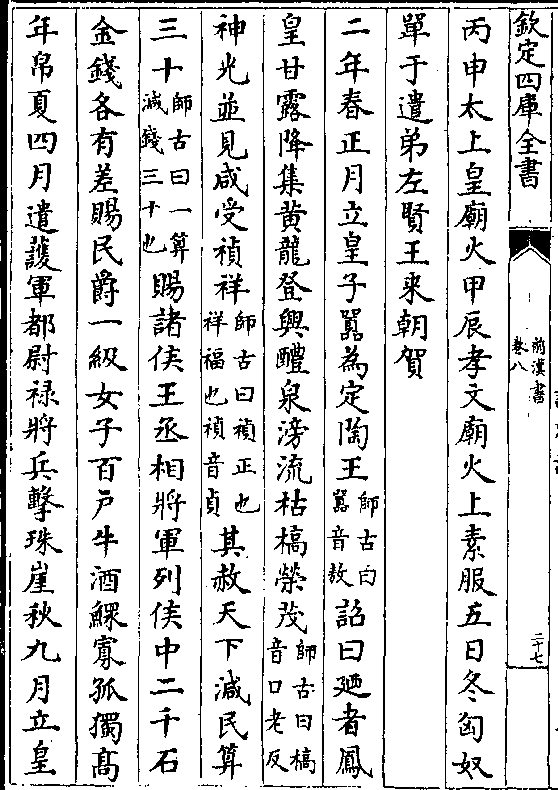 欽定四庫全書
前漢書
卷八
二十七
丙申太上皇廟火甲辰孝文廟火上素服五日冬匈奴
單于遣弟左賢王来朝賀
二年春正月立皇子囂為定陶王師古曰囂音敖詔曰廼者鳳
皇甘露降集黄龍登興醴泉滂流枯槁榮茂師古曰槁音口老反
神光並見咸受禎祥師古曰禎正也祥福也禎音貞其赦天下減民算
三十師古曰一算減錢三十也賜諸侯王丞相將軍列侯中二千石
金錢各有差賜民爵一級女子百戸牛酒鰥寡孤獨髙
年帛夏四月遣䕶軍都尉禄將兵擊珠崖秋九月立皇